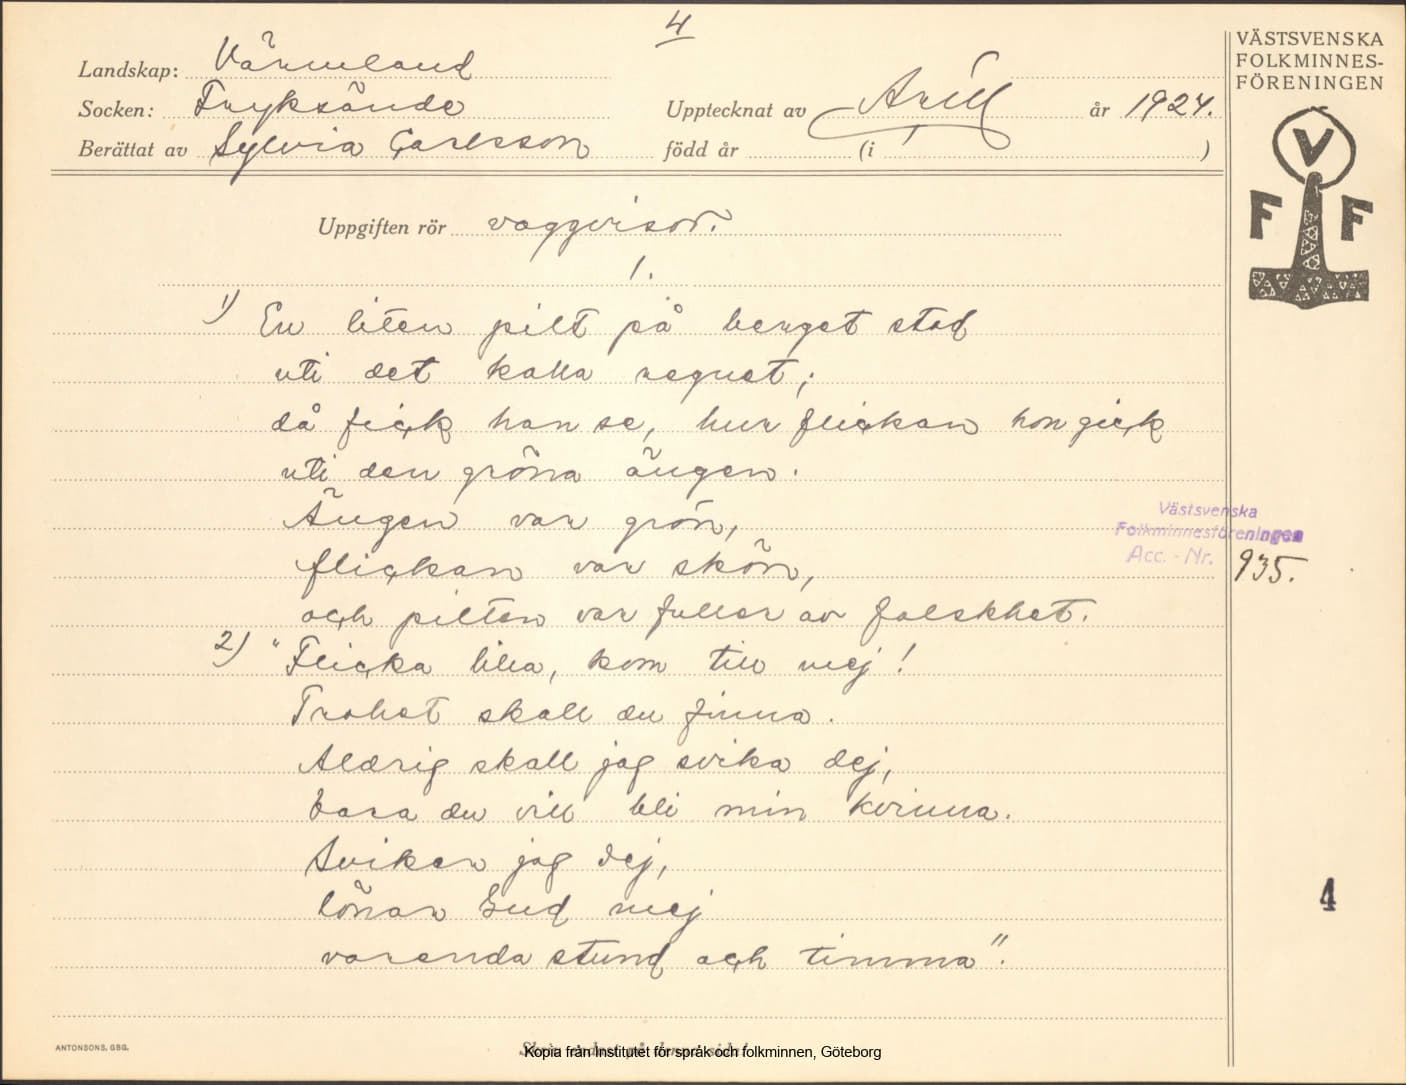 4
Landskap: Värmland
Socken: Fryksände
Upptecknat av år 1924.
Berättat av Sylvia Carlsson född år (i )
VÄSTSVENSKA
FOLKMINNES-
FÖRENINGEN
V
F F
Uppgiften rör vaggvisor.
1.
1) En liten pilt på berget stod
uti det kalla regnet;
då fick han se, hur flickan hon gick
uti den gröna ängen.
Ängen var grön,
flickan var skön,
och pilten var fuller av falskhet.
2) "Flicka lilla, kom till mej!
Trohet skall du finna.
Aldrig skall jag svika dej,
bara du vill bli min kvinna.
Sviker jag dej,
lönar Gud mej
varenda stund och timma".
Västsvenska
Folkminnesföreningen
Acc. - Nr. 935.
4
ANTONSONS, GBG.
Skriv endast på denna sida!
Kopia från Institutet för språk och folkminnen, Göteborg